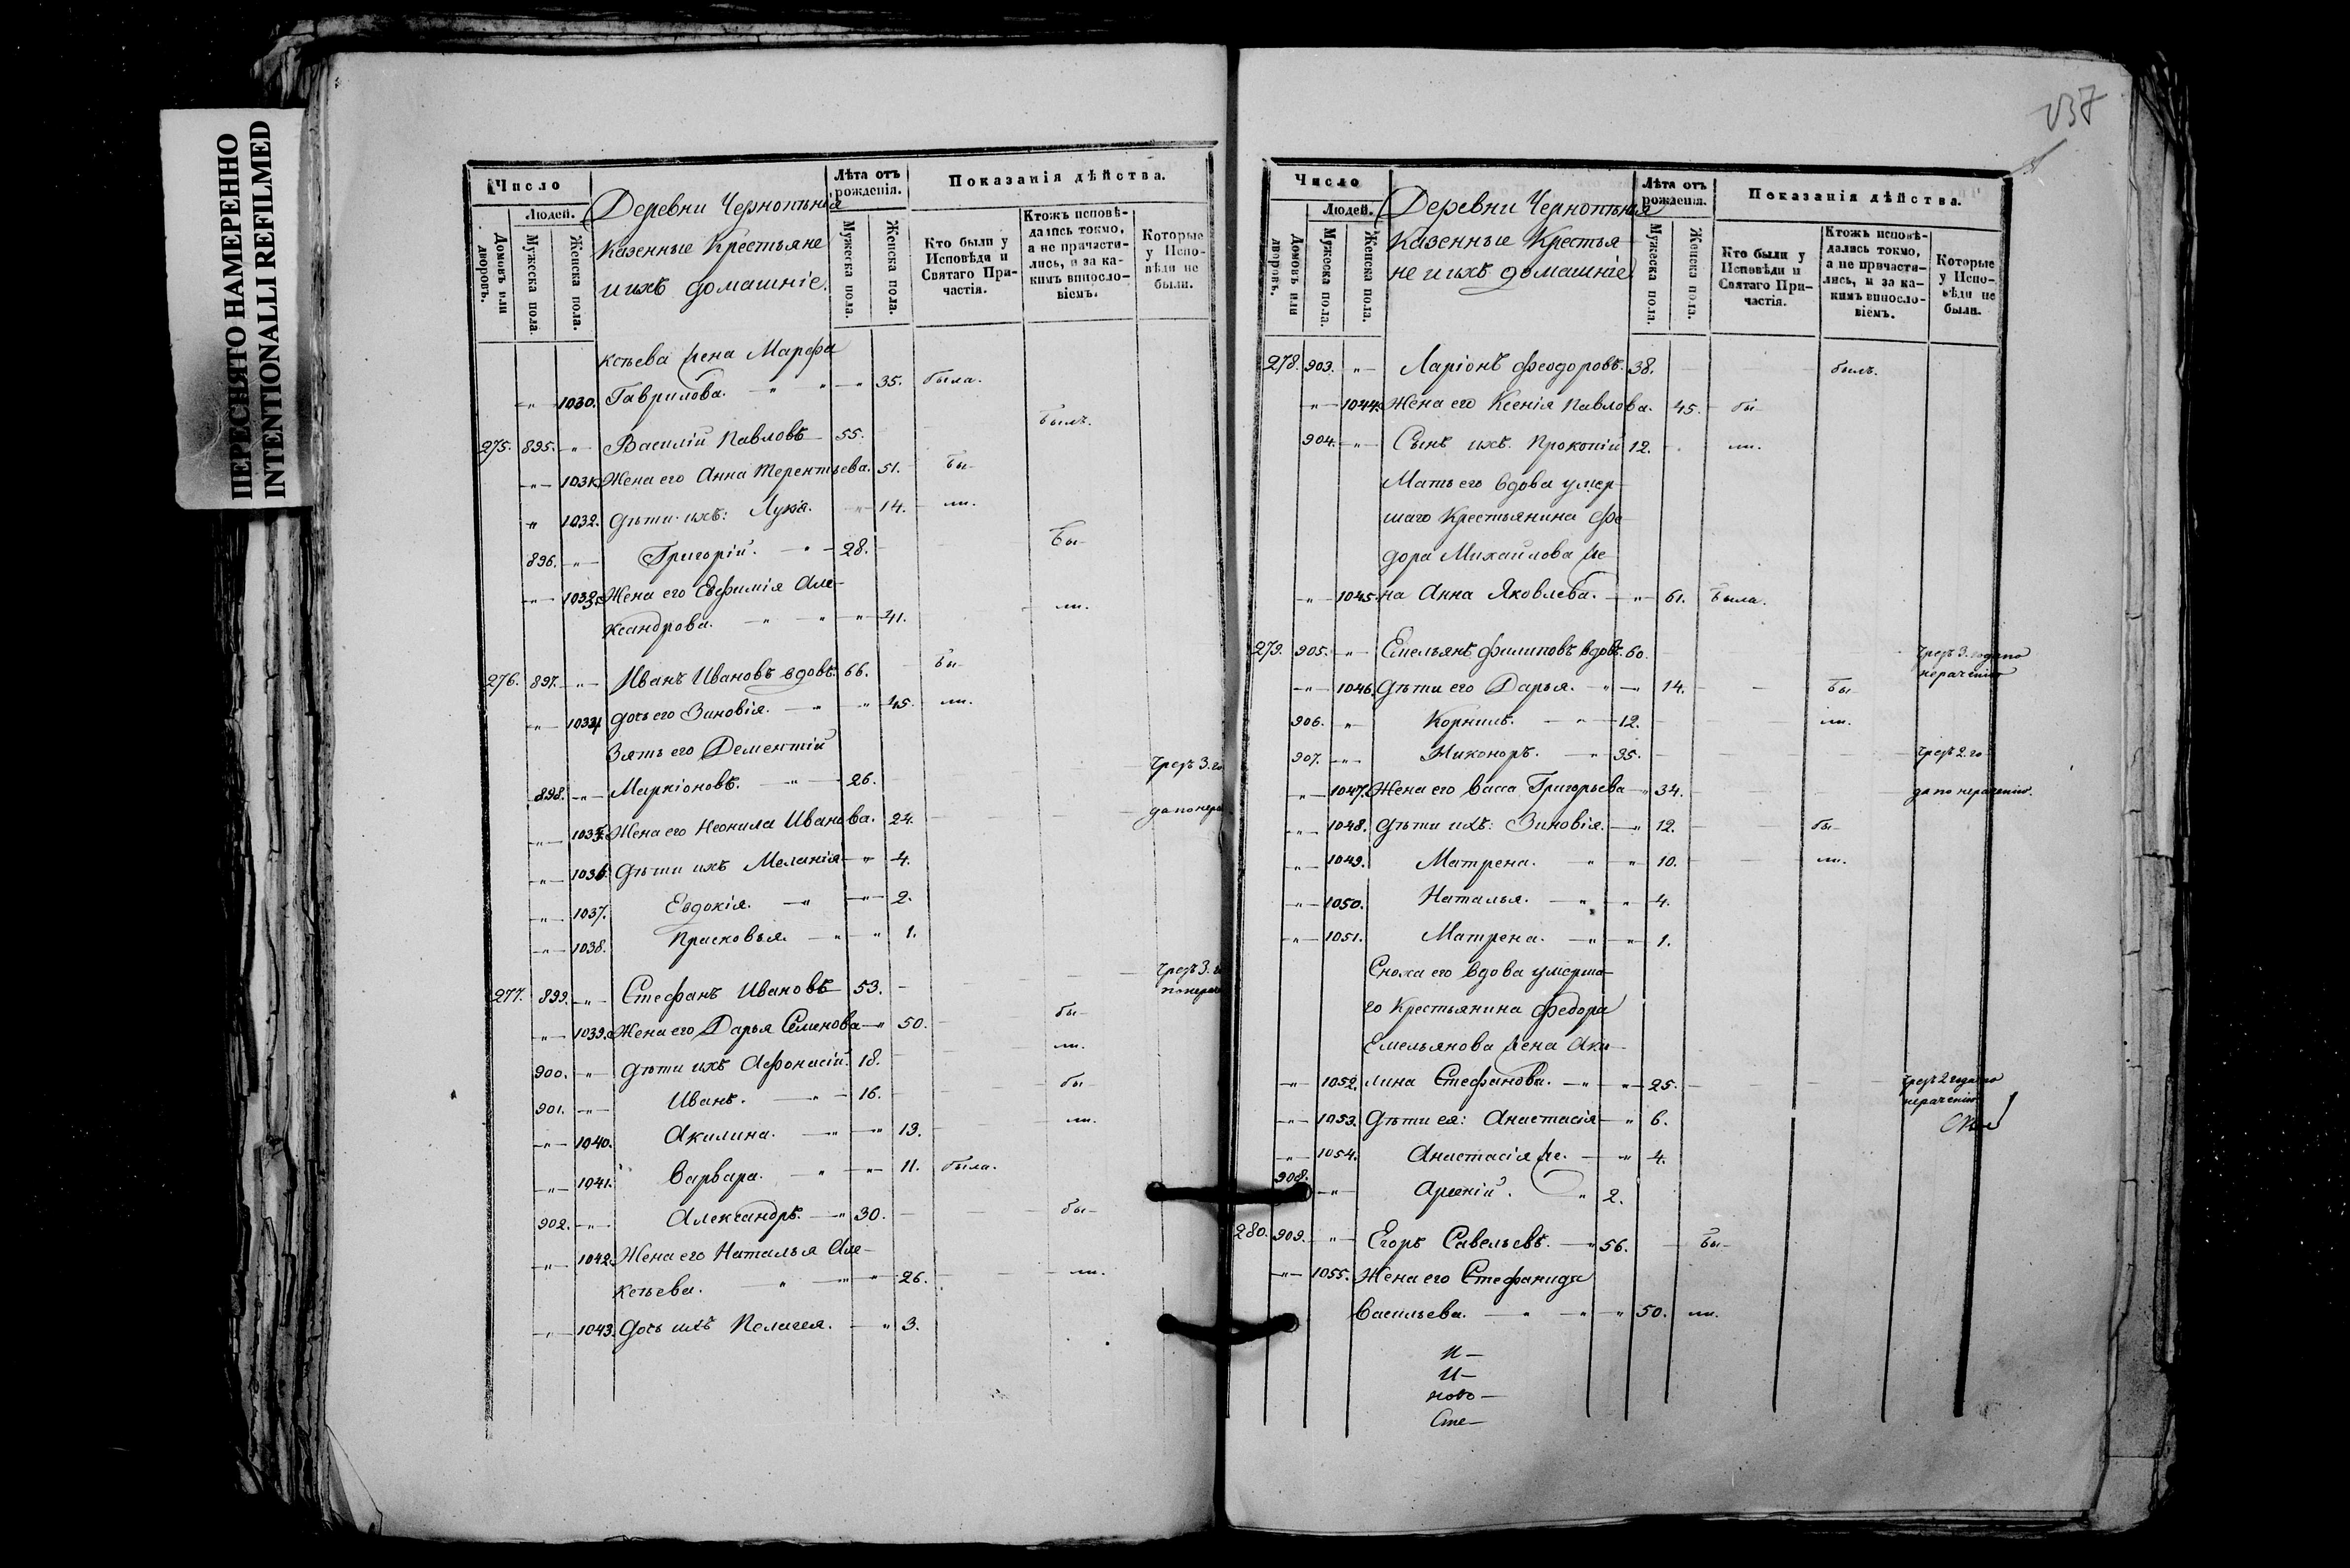 ПЕРЕСНЯТО НАМЕРЕННО
INTENTIONALLI REFILMED
Число
Людей.
Домовъ или дворовъ.
Мужеска пола.
Женска пола.
Деревни Чернопѣнья
Казенные Крестьяне
и ихъ домашніе.
Лѣта отъ рожденія.
Мужеска пола.
Женска пола.
Показанія дѣйства.
Кто были у Исповѣди и Святаго Причастія.
Ктожъ исповѣдались токмо, а не причастились, и за какимъ винословіемъ.
Которые у Исповѣди не были.
ксѣева жена Марфа
" 1030. Гаврилова. " " " 35. была.
275. 895. " Василій Павловъ 55. былъ.
" 1031. Жена его Анна Терентьева. 51. бы-
" 1032. Дѣти ихъ: Лукія. " 14. ли.
896. " Григорій. " 28. бы-
" 1033. Жена его Евфимія Але-
ксандрова. " " " 41. ли.
276. 897. " Иванъ Ивановъ вдовъ. 66. бы-
" 1034. Дочь его Зиновія. " " 45. ли.
Зять его Дементій
898. " Маркіоновъ. " 26. чрезъ 3. го
" 1035. Жена его Неонила Иванова. 24. да по нера
" 1036. Дѣти ихъ Меланія " 4.
" 1037. Евдокія. " " 2.
" 1038. Прасковья. " " 1.
277. 899. " Стефанъ Ивановъ 53. чрезъ 3. го
по нера
" 1039. Жена его Дарья Семенова " 50. бы-
900. " Дѣти ихъ Афонасій. 18. ли.
901. " Иванъ. " 16. бы-
" 1040. Акилина. " " 13. ли.
" 1041. Варвара. " " 11. была.
902. " Александръ. " 30. бы-
" 1042. Жена его Наталья Але-
ксѣева. " " " 26. ли.
" 1043. Дочь ихъ Пелагея. " 3.
237
Число
Людей.
Домовъ или дворовъ.
Мужеска пола.
Женска пола.
Деревни Чернопѣнья
Казенные Крестья
не и ихъ домашніе
Лѣта отъ рожденія.
Мужеска пола.
Женска пола.
Показанія дѣйства.
Кто были у Исповѣди и Святаго Причастія.
Ктожъ исповѣдались токмо, а не причастились, и за какимъ винословіемъ.
Которые у Исповѣди не были.
278. 903. " Ларіонъ Феодоровъ. 38. былъ.
" 1044. Жена его Ксенія Павлова. 45. бы-
904. " Сынъ ихъ Прокопій 12. ли.
Мать его вдова умер-
шаго Крестьянина Фе-
дора Михайлова же-
" 1045. на Анна Яковлева. " 61. была.
279. 905. " Емельянъ Филиповъ вдовъ. 60. чрезъ 3. года по
нераченію
" 1046. Дѣти его Дарья. " " 14. бы
906. " Корнилъ. " 12. ли.
907. " Никоноръ. " 35. чрезъ 2. го
" 1047. Жена его Васса Григорьева " 34. да по нераченію.
" 1048. Дѣти ихъ: Зиновія. " 12. бы-
" 1049. Матрена. " " 10. ли.
" 1050. Наталья. " " 4.
" 1051. Матрена. " " 1.
Сноха его вдова умерша-
го Крестьянина Федора
Емельянова жена Аки-
" 1052. лина Стефанова. " " 25. чрезъ 2 года по
нераченію
" 1053. Дѣти ея: Анастасія " 6.
" 1054. Анастасія же. " 4.
908. " Арсеній. " 2.
280. 909. " Егоръ Савельевъ. " 56. бы-
" 1055. Жена его Стефанида
Васильева. " " " 50. ли.
И-
И-
ново-
Сте-